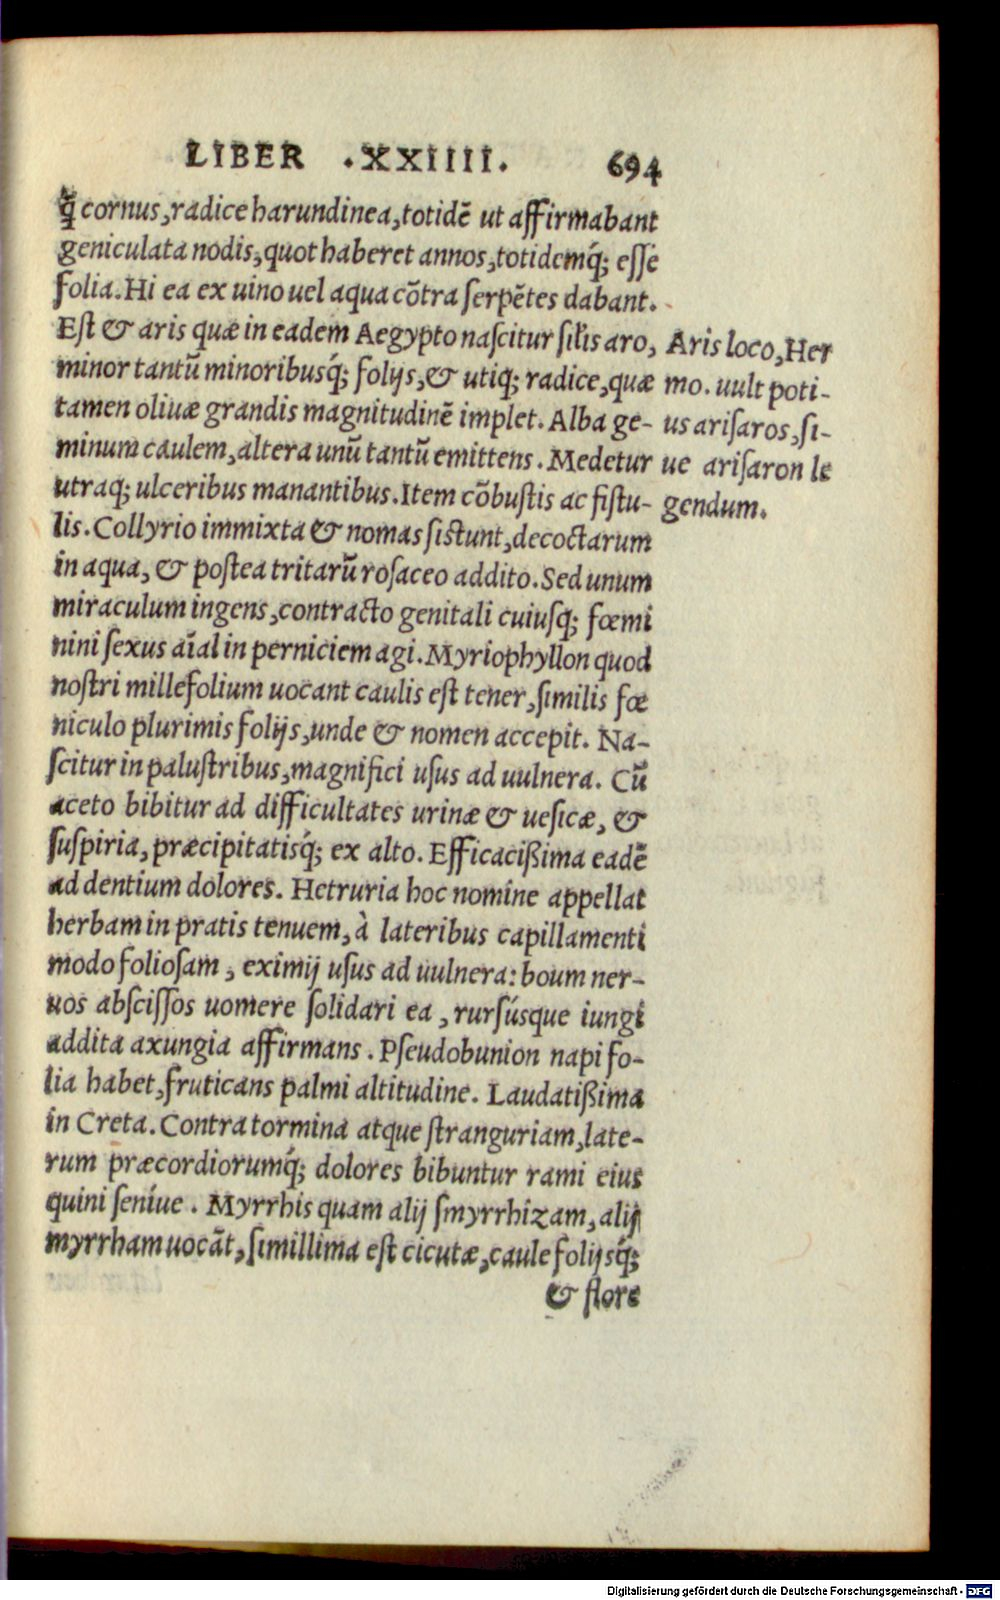 LIBER .XXIIII. 694
q̃ cornus, radice harundinea, totidẽ ut affirmabant
geniculata nodis, quot haberet annos, totidemq́; esse
folia. Hi ea ex uino uel aqua cõtra serpẽtes dabant.
Est & aris quæ in eadem Aegypto nascitur silis aro,
minor tantũ minoribusq́; folijs, & utiq; radice, quæ
tamen oliuæ grandis magnitudinẽ implet. Alba ge-
minum caulem, altera unũ tantũ emittens. Medetur
utraq; ulceribus manantibus. Item cõbustis ac fistu-
lis. Collyrio immixta & nomas sistunt, decoctarum
in aqua, & postea tritarũ rosaceo addito. Sed unum
miraculum ingens, contracto genitali cuiusq; fœmi
nini sexus aĩal in perniciem agi. Myriophyllon quod
nostri millefolium uocant caulis est tener, similis fœ
niculo plurimis folijs, unde & nomen accepit. Na-
scitur in palustribus, magnifici usus ad uulnera. Cũ
aceto bibitur ad difficultates urinæ & uesicæ, &
suspiria, præcipitatisq́; ex alto. Efficacißima eadẽ
ad dentium dolores. Hetruria hoc nomine appellat
herbam in pratis tenuem, à lateribus capillamenti
modo foliosam, eximij usus ad uulnera: boum ner-
uos abscissos uomere solidari ea, rursúsque iungi
addita axungia affirmans. Pseudobunion napi fo-
lia habet, fruticans palmi altitudine. Laudatißima
in Creta. Contra tormina atque stranguriam, late-
rum præcordiorumq́; dolores bibuntur rami eius
quini seníue. Myrrhis quam alij smyrrhizam, alij
myrrham uocãt, simillima est cicutæ, caule folijsq́;
& flore
Aris loco, Her
mo. uult poti-
us arisaros, si-
ue arisaron le
gendum.
Digitalisierung gefördert durch die Deutsche Forschungsgemeinschaft - DFG